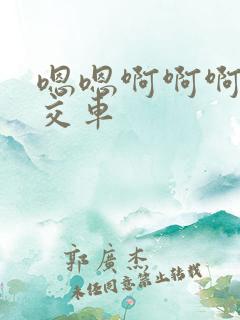 嗯嗯啊啊啊
交车
郭廣杰
未经同意禁止转载